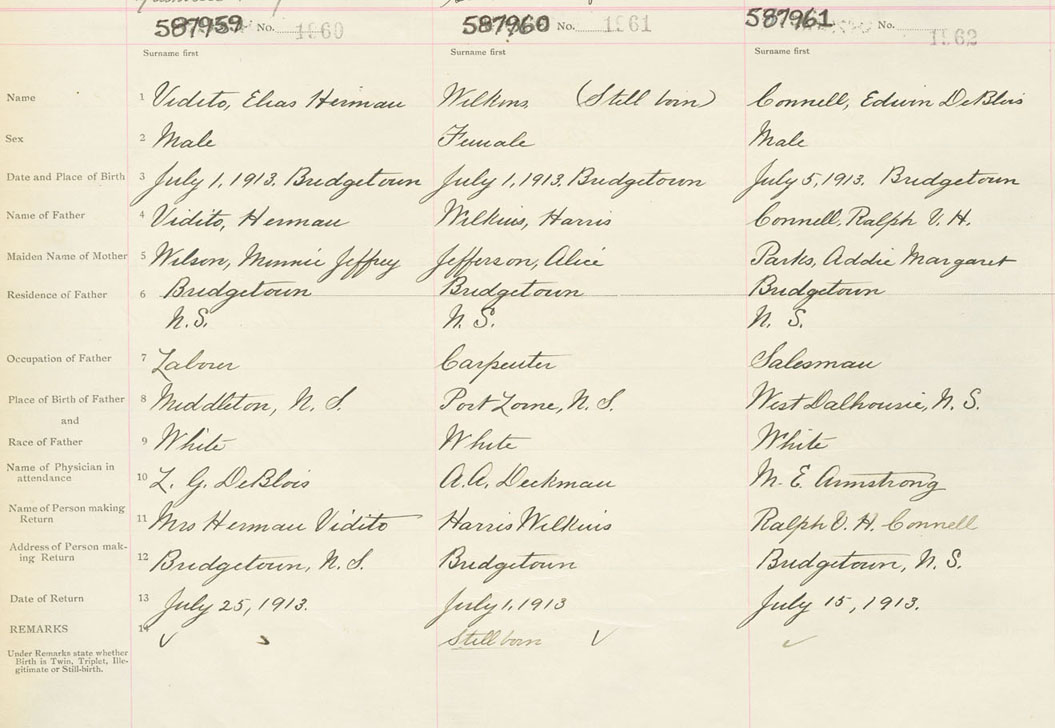 587959 No. 1960 587960 No. 1961 587961 No. 1962
Surname first Surname first Surname first
Name 1 Vidito, Elias Herman Wilkins, (Still born) Connell, Edwin DeBlois
Sex 2 Male Female Male
Date and Place of Birth 3 July 1, 1913. Bridgetown July 1, 1913, Bridgetown July 5, 1913. Bridgetown
Name of Father 4 Vidito, Herman Wilkins, Harris Connell, Ralph V. H.
Maiden Name of Mother 5 Wilson, Minnie Jeffrey Jefferson, Alice Parks, Addie Margaret
Residence of Father 6 Bridgetown Bridgetown Bridgetown
N.S. N. S. N. S.
Occupation of Father 7 Laborer Carpenter Salesman
Place of Birth of Father 8 Middleton, N. S. Port Lorne, N. S. West Dalhousie, N. S.
and
Race of Father 9 White White White
Name of Physician in
attendance 10 L. G. DeBlois A. A. Deckman M. E. Armstrong
Name of Person making
Return 11 Mrs Herman Vidito Harris Wilkins Ralph V. H. Connell
Address of Person mak-
ing Return 12 Bridgetown, N. S. Bridgetown Bridgetown, N. S.
Date of Return 13 July 25, 1913. July 1, 1913 July 15, 1913.
REMARKS 14 Still born
Under Remarks state whether
Birth is Twin, Triplet, Ille-
gitimate or Still-birth.